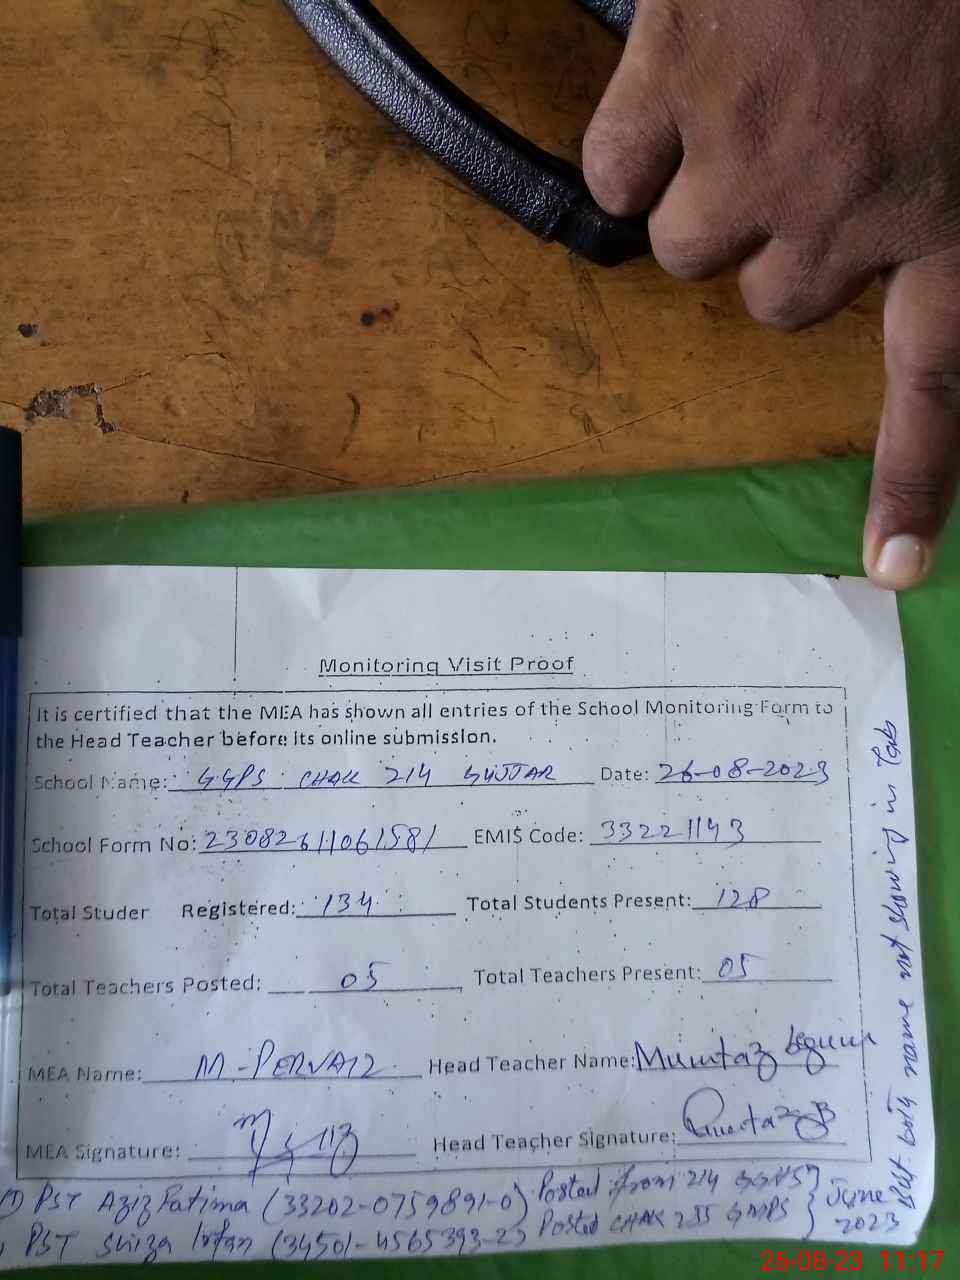 Monitoring Visit Proof
It is certified that the MEA has shown all entries of the School Monitoring Form to
the Head Teacher before its online submission.
School Name: GGPS CHAK 214 GUJJAR Date: 26-08-2023
School Form No: EMIS Code: 33221143
Total Studer Registered: 134 Total Students Present: 128
Total Teachers Posted: 05 Total Teachers Present: 05
MEA Name: M-PERVAIZ Head Teacher Name: Mumtaz begum
MEA Signature: Head Teacher Signature: Mumtaz B
(1) PST Aziz Fatima (33202-0759891-0) Posted from 214
PST Shiza Irfan Posted CHAK 255 GMPS
June
2023
But both name not showing in Tab
26-08-23 11:17